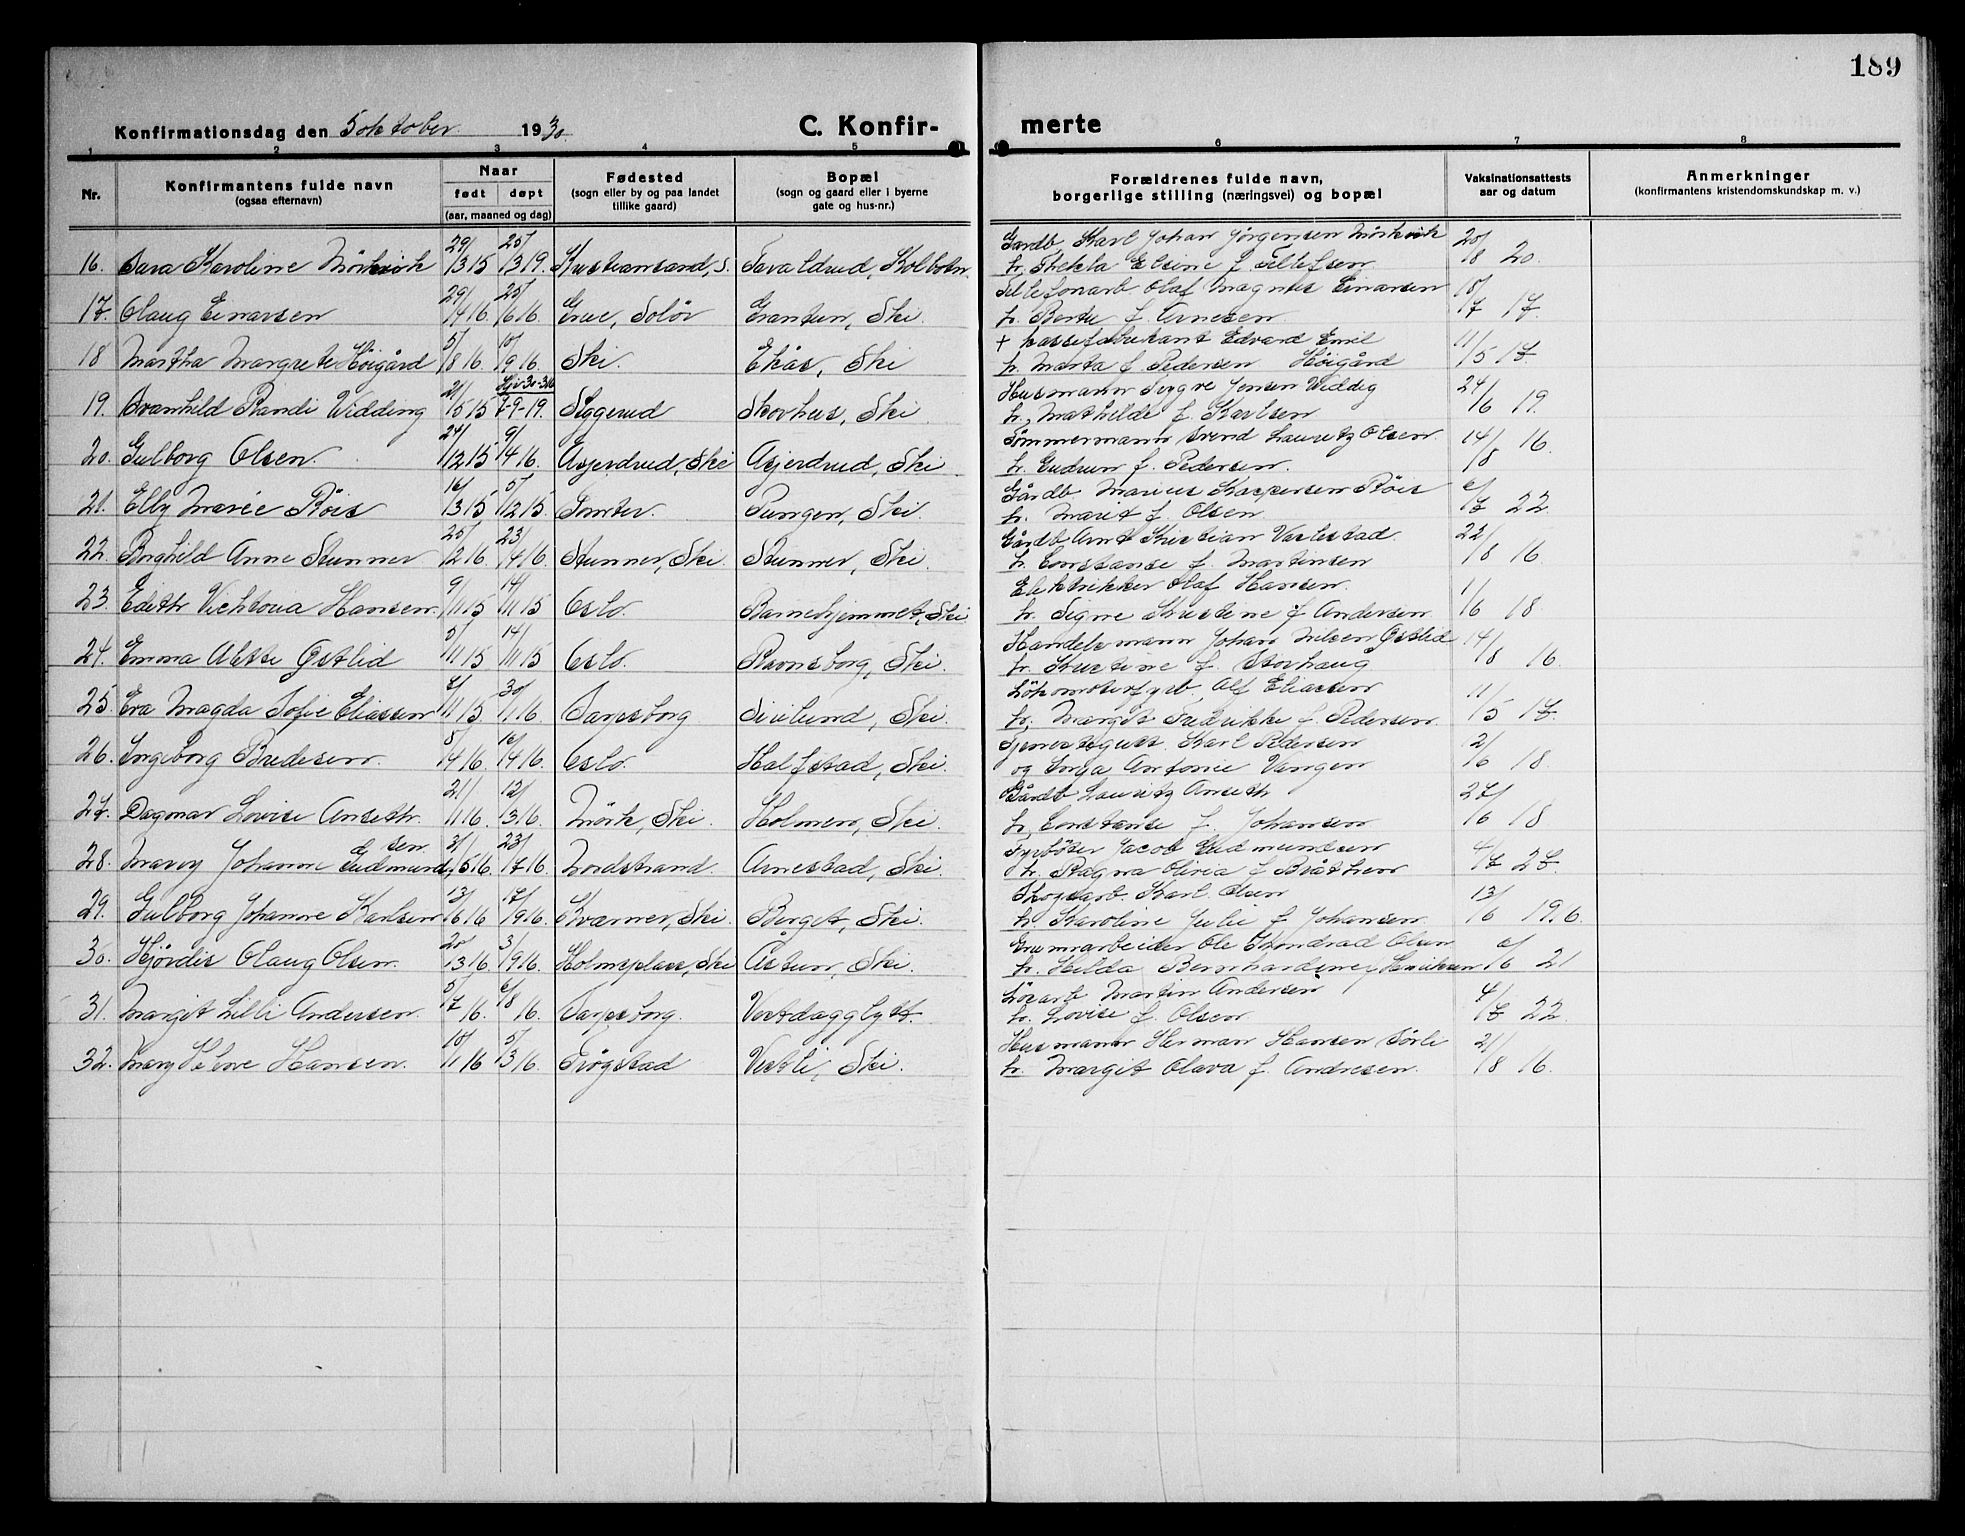 189
Konfirmationsdag den 5 oktober 1930. C. Konfir- merte
1 2 3 4 5 6 7 8
Nr. Konfirmantens fulde navn (ogsaa efternavn) Naar født døpt (aar, maaned og dag) Fødested (sogn eller by og paa landet tillike gaard) Bopæl (sogn og gaard eller i byerne gate og hus-nr.) Forældrenes fulde navn, borgerlige stilling (næringsvei) og bopæl Vaksinationsattests aar og datum Anmerkninger (konfirmantens kristendomskundskap m. v.)
16. Sara Karoline Mörkvik 29/13 15 25/13 19. Kristiansand, S. Taraldrud, Kolbotn. Gardb. Karl Johan Jørgensen Mörkvik 20/8 20.
h. Thekla Elsine f. Tellefsen.
17. Olaug Einarsen 29/4 16. 25/6 16. Grue, Solör Grantun, Ski. Telefonarb. Olaf Magnus Einarsen 18/7 17.
h. Berte f. Arnesen.
18 Martha Margrete Höigård 5/8 16. 10/9 16. Ski. Ekås, Ski + kassefabrikant Edvard Emil 11/5 17
h. Marta f. Pedersen Höigård
19. Svanhild Randi Vidding 21/5 15 7-9-19. Siggerud Skovhus, Ski. Husmann Sigge Jensen Widdig 24/6 19.
h. Mathilde f. Karlsen
20. Gulborg Olsen. 24/12 15 9/4 16. Asjerdrud, Ski Asjerdrud, Ski Tömmermann Svend Lauritz Olsen. 14/8 16.
h. Gudrun f. Pedersen.
21. Elly Marie Röis 16/3 15 5/12 15. Tomter. Pungen, Ski. Gårdb. Marius Kaspersen Röis 6/7 22.
h. Marit f. Olsen.
22. Borghild Anne Stunner 25/2 16. 23/4 16. Stunner, Ski. Stunner, Ski. Gårdb. Arnt Kristian Vestestad. 22/8 16.
h. Constanse f. Martinsen
23. Edith Vichtoria Hansen. 9/11 15 14/11 15 Oslo. Barnehjemmet, Ski Elektrikker Olaf Hansen. 1/6 18.
h. Signe Kristine f. Andersen.
24. Emma Alette Østlid 5/11 15 14/11 15 Oslo. Ravnsborg, Ski. Handelsmann Johan Nilsen Østlid 14/8 16.
h. Kristine f. Storhaug
25. Eva Magda Sofie Eliassen 7/11 15 30/1 16 Sarpsborg Sivilund, Ski. Lökomotivfyrb. Alf Eliassen 11/5 17.
h. Margit Fredrikke f. Pedersen.
26. Ingeborg Bredesen. 8/4 16. 16/4 16. Oslo. Halfstad, Ski. Tjenestegutt Karl Pedersen 2/6 18.
og Inga Antonie Vangen
27. Dagmar Lovise Anseth. 21/1 16. 12/3 16. Mörk, Ski. Holmen, Ski. Gårdb. Lauritz Anseth 27/6 18
h. Constanse f. Johansen
28. Marry Johanne Gudmundsen. 31/5 16. 23/7 16. Nordstrand. Arnestad, Ski. Fyrböter Jacob Gudmundsen 4/7 27.
h. Ragna Olivia f. Bråthen
29. Gulborg Johanne Karlsen 13/6 16 17/9 16. Kværner, Ski. Berget, Ski. Skogsarb. Karl Olsen 13/6 19.6.
h. Karoline Julie f. Johansen.
30. Hjördis Olaug Olsen. 20/3 16. 3/9 16. Holmsplass, Ski Åstun, Ski. Grunnarbeider Ole Kondrad Olsen 6/6 21
h. Hilda Bernhardine f. Henriksen
31. Margit Lilli Andersen. 5/7 16. 6/8 16. Sarpsborg. Vestdagglytt. Lösarb Martin Andersen 4/7 22.
h. Lovise f. Olsen
32. Mary Helene Hansen. 10/1 16 5/3 16. Trögstad Vestli, Ski. Husmann Herman Hansen Sörli 21/8 16.
h. Margit Olava f. Andresen.